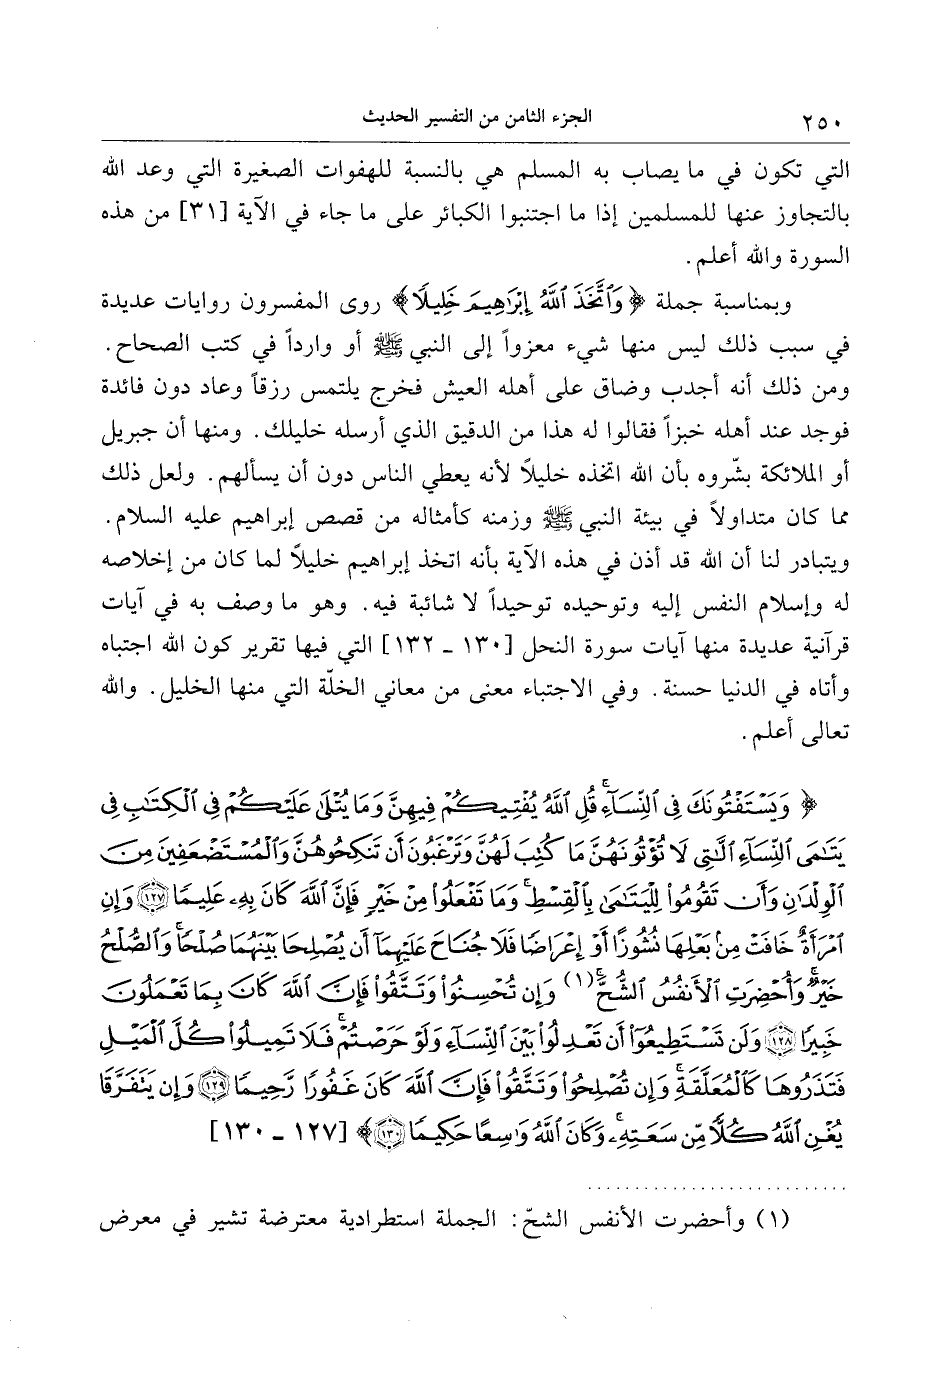 الجزء الثامن من التفسير الحديث ٢٥٠
التي تكون في ما يصاب به المسلم هي بالنسبة للهفوات الصغيرة التي وعد الله
بالتجاوز عنها للمسلمين إذا ما اجتنبوا الكبائر على ما جاء في الآية [٣١] من هذه
السورة والله أعلم.
وبمناسبة جملة ﴿وَٱتَّخَذَ ٱللَّهُ إِبْرَٰهِيمَ خَلِيلًا﴾ روى المفسرون روايات عديدة
في سبب ذلك ليس منها شيء معزواً إلى النبي ﷺ أو وارداً في كتب الصحاح.
ومن ذلك أنه أجدب وضاق على أهله العيش فخرج يلتمس رزقاً وعاد دون فائدة
فوجد عند أهله خبزاً فقالوا له هذا من الدقيق الذي أرسله خليلك. ومنها أن جبريل
أو الملائكة بشّروه بأن الله اتخذه خليلاً لأنه يعطي الناس دون أن يسألهم. ولعل ذلك
مما كان متداولاً في بيئة النبي ﷺ وزمنه كأمثاله من قصص إبراهيم عليه السلام.
ويتبادر لنا أن الله قد أذن في هذه الآية بأنه اتخذ إبراهيم خليلاً لما كان من إخلاصه
له وإسلام النفس إليه وتوحيده توحيداً لا شائبة فيه. وهو ما وصف به في آيات
قرآنية عديدة منها آيات سورة النحل [١٣٠ ـ ١٣٢] التي فيها تقرير كون الله اجتباه
وأتاه في الدنيا حسنة. وفي الاجتباء معنى من معاني الخلّة التي منها الخليل. والله
تعالى أعلم.
﴿وَيَسْتَفْتُونَكَ فِى ٱلنِّسَآءِ ۖ قُلِ ٱللَّهُ يُفْتِيكُمْ فِيهِنَّ وَمَا يُتْلَىٰ عَلَيْكُمْ فِى ٱلْكِتَٰبِ فِى
يَتَٰمَى ٱلنِّسَآءِ ٱلَّٰتِى لَا تُؤْتُونَهُنَّ مَا كُتِبَ لَهُنَّ وَتَرْغَبُونَ أَن تَنكِحُوهُنَّ وَٱلْمُسْتَضْعَفِينَ مِنَ
ٱلْوِلْدَٰنِ وَأَن تَقُومُوا۟ لِلْيَتَٰمَىٰ بِٱلْقِسْطِ ۚ وَمَا تَفْعَلُوا۟ مِنْ خَيْرٍ فَإِنَّ ٱللَّهَ كَانَ بِهِۦ عَلِيمًا ١٢٧ وَإِنِ
ٱمْرَأَةٌ خَافَتْ مِنۢ بَعْلِهَا نُشُوزًا أَوْ إِعْرَاضًا فَلَا جُنَاحَ عَلَيْهِمَآ أَن يُصْلِحَا بَيْنَهُمَا صُلْحًا ۚ وَٱلصُّلْحُ
خَيْرٌ ۗ وَأُحْضِرَتِ ٱلْأَنفُسُ ٱلشُّحَّ ۚ (١) وَإِن تُحْسِنُوا۟ وَتَتَّقُوا۟ فَإِنَّ ٱللَّهَ كَانَ بِمَا تَعْمَلُونَ
خَبِيرًا ١٢٨ وَلَن تَسْتَطِيعُوٓا۟ أَن تَعْدِلُوا۟ بَيْنَ ٱلنِّسَآءِ وَلَوْ حَرَصْتُمْ ۖ فَلَا تَمِيلُوا۟ كُلَّ ٱلْمَيْلِ
فَتَذَرُوهَا كَٱلْمُعَلَّقَةِ ۚ وَإِن تُصْلِحُوا۟ وَتَتَّقُوا۟ فَإِنَّ ٱللَّهَ كَانَ غَفُورًا رَّحِيمًا ١٢٩ وَإِن يَتَفَرَّقَا
يُغْنِ ٱللَّهُ كُلًّا مِّن سَعَتِهِۦ ۚ وَكَانَ ٱللَّهُ وَٰسِعًا حَكِيمًا ١٣٠﴾ [١٢٧ ـ ١٣٠]
(١) وأحضرت الأنفس الشحّ: الجملة استطرادية معترضة تشير في معرض